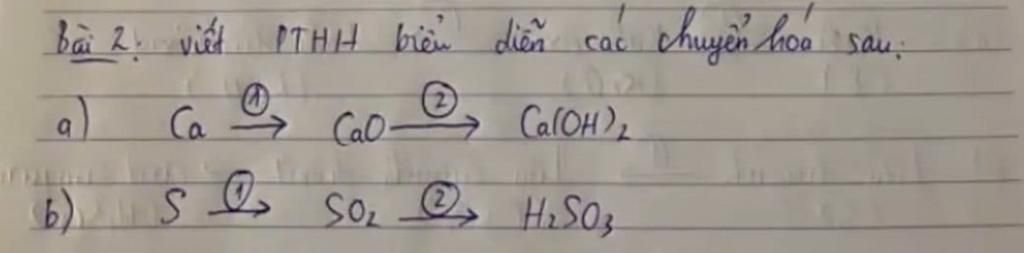 Bài 2: viết PTHH biểu diễn các chuyển hoá sau:
a) Ca ①→ CaO ②→ Ca(OH)₂
b) S ①→ SO₂ ②→ H₂SO₃